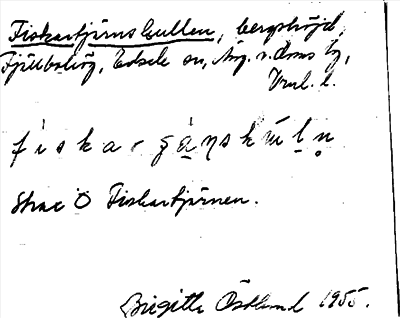 Fiskartjärnskullen, bergshöjd,
Fjällbohög, Edsele sn, Ång. v. doms lg,
Vnl. l.
fiskargänskuln
Strax Ö Fiskartjärnen.
Birgitta Östlund 1955.